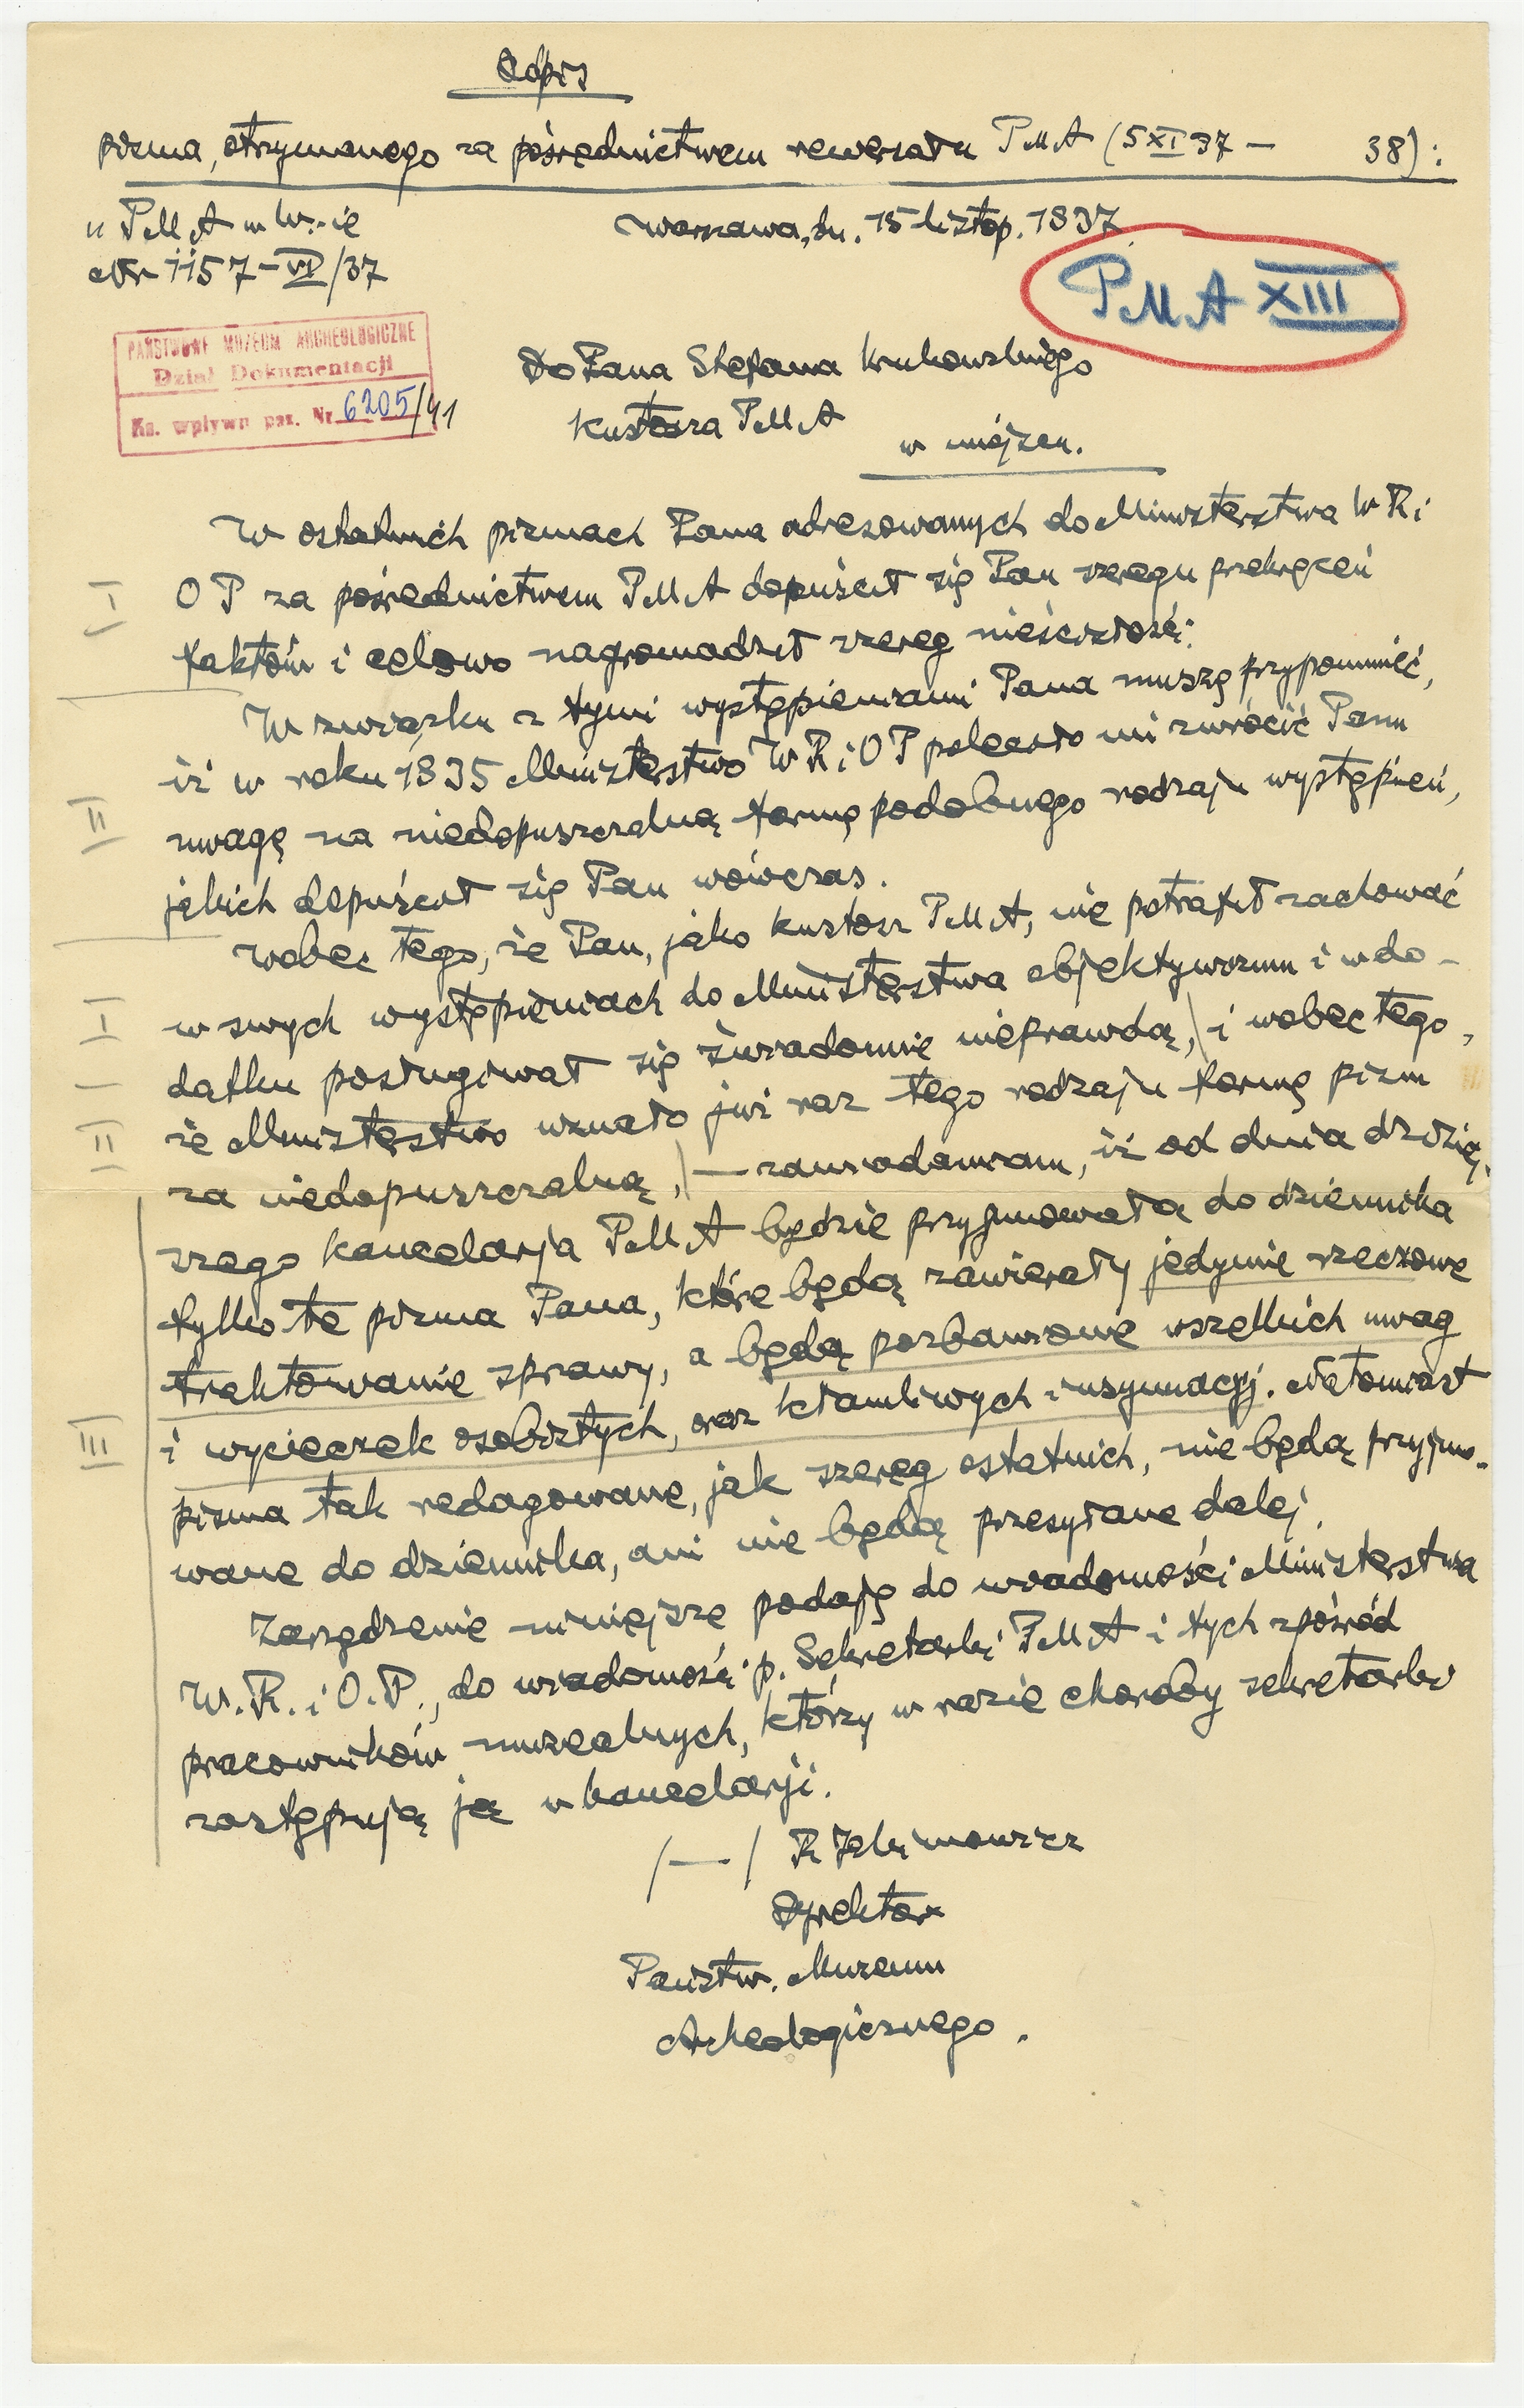 Odpis
pisma, otrzymanego za pośrednictwem rewersału PMA (5 XI 37 — 38):
"PMA w W-ie
Nr 1157-VI/37
Warszawa, dn. 15 listop. 1937
PMA XIII
PAŃSTWOWE MUZEUM ARCHEOLOGICZNE
Dział Dokumentacji
Ks. wpływu pas. Nr 6205/41
Do Pana Stefana Krukowskiego
Kustosza PMA
w miejscu.
W ostatnich pismach Pana adresowanych do Ministerstwa WRi
OP za pośrednictwem PMA dopuścił się Pan szeregu przekręceń
faktów i celowo nagromadził szereg nieścisłości:
W związku z tymi wystąpieniami Pana muszę przypomnieć,
iż w roku 1935 Ministerstwo WRiOP polecało mi zwrócić Panu
uwagę na niedopuszczalną formę podobnego rodzaju wystąpień,
jakich dopuścił się Pan wówczas.
Wobec tego, że Pan, jako kustosz PMA, nie potrafił zachować
w swych wystąpieniach do Ministerstwa objektywizmu i w do-
datku posługiwał się świadomie nieprawdą, i wobec tego,
że Ministerstwo uznało już raz tego rodzaju formę pism
za niedopuszczalną, — zawiadamiam, iż od dnia dzisiej-
szego kancelarja PMA będzie przyjmowała do dziennika
tylko te pisma Pana, które będą zawierały jedynie rzeczowe
traktowanie sprawy, a będą pozbawione wszelkich uwag
i wycieczek osobistych, oraz kłamliwych insynuacyj. Natomiast
pisma tak redagowane, jak szereg ostatnich, nie będą przyjmo-
wane do dziennika, ani nie będą przesyłane dalej.
Zarządzenie niniejsze podaję do wiadomości Ministerstwa
W.R. i O.P., do wiadomości p. Sekretarki PMA i tych spośród
pracowników muzealnych, którzy w razie choroby sekretarki
zastępują ją w kancelarji.
/—/ R Jakimowicz
Dyrektor
Państw. Muzeum
Archeologicznego.
I
II
I
II
III